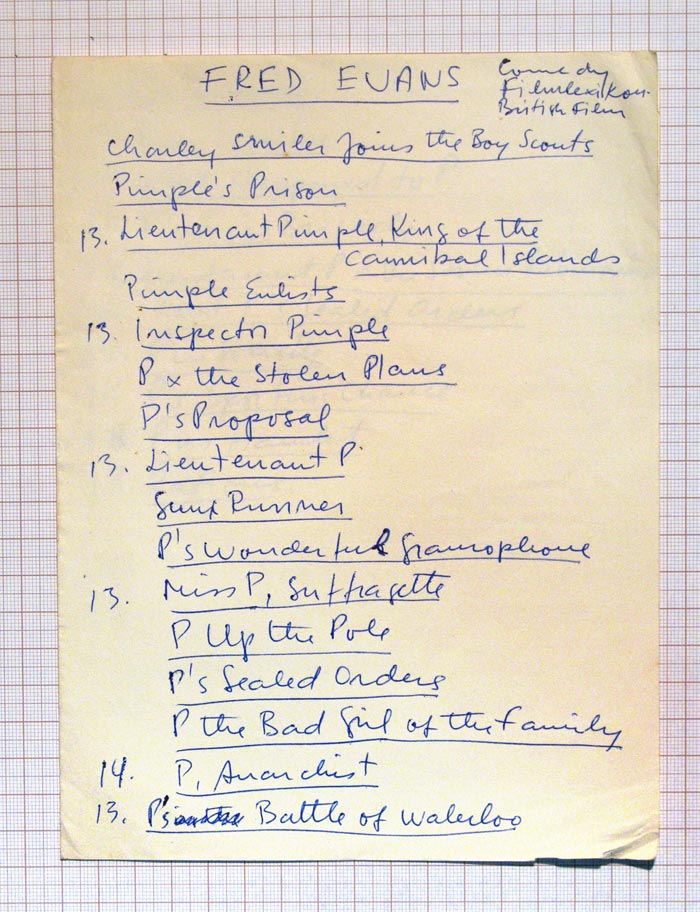 FRED EVANS
Comedy
Filmlexikon
British Film
Charley Smiler Joins the Boy Scouts
Pimple's Prison
13. Lieutenant Pimple, King of the
Cannibal Islands
Pimple Enlists
13. Inspector Pimple
P x the Stolen Plans
P's Proposal
13. Lieutenant P
Runner
P's Wonderful Gramophone
13. Miss P, Suffragette
P Up the Pole
P's Sealed Orders
P the Bad Girl of the Family
14. P, Anarchist
13. P's Battle of Waterloo